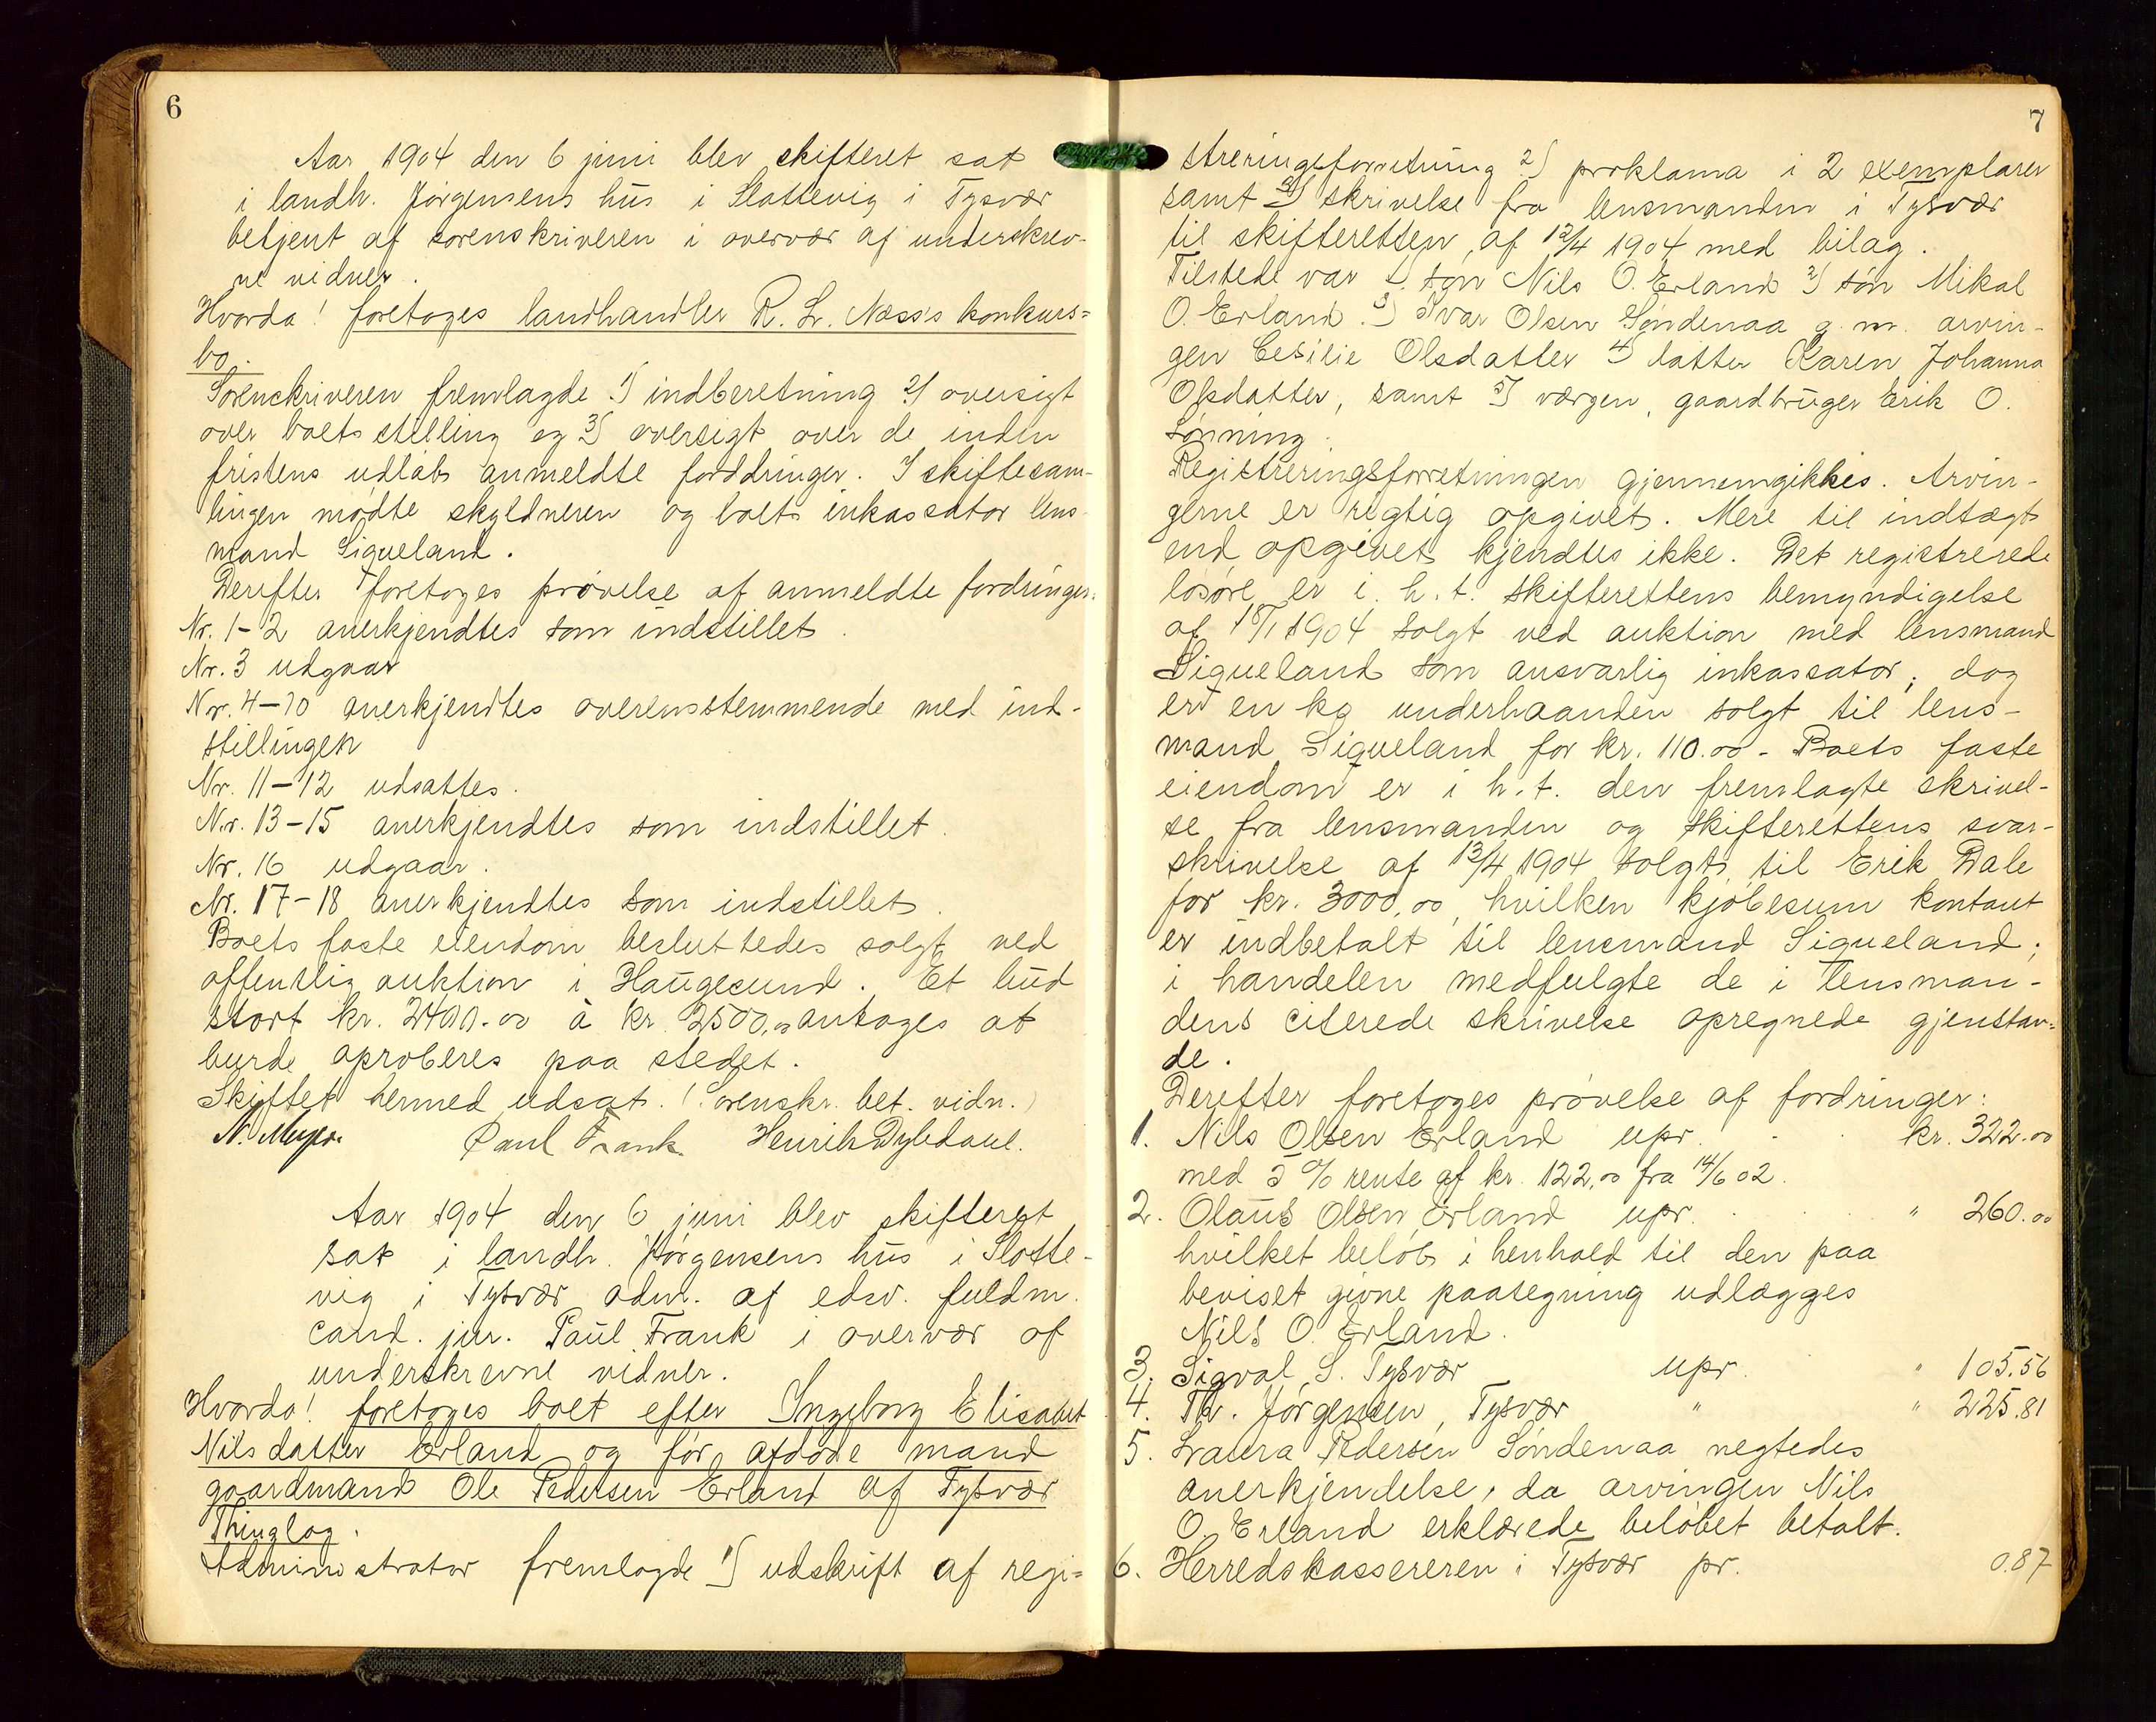 6
Aar 1904 den 6 juni blev skifteret sat
i landh. Jørgensens hus i Slottevig i Tysvær
betjent af sorenskriveren i overvær af underskrev-
ne vidner.
Hvorda! foretoges landhandler R. L. Næss's konkurs=
bo.
Sorenskriveren fremlagde 1) indberetning 2) oversigt
over boets stilling og 3) oversigt over de inden
fristens udløb anmeldte forddringer. I skiftesam-
lingen mødte skyldneren og boets inkassator lens-
mand Siqveland.
Derefter foretoges prøvelse af anmeldte fordringer.
Nr. 1-2 anerkjendtes som indstillet.
Nr. 3 udgaar
Nr. 4-10 anerkjendtes overensstemmende med ind-
stillingen
Nr. 11-12 udsattes.
Nr. 13-15 anerkjendtes som indstillet.
Nr. 16 udgaar.
Nr. 17-18 anerkjendtes som indstillet.
Boets faste eiendom besluttedes solgt ved
offentlig auktion i Haugesund. Et bud
stort kr. 2400.00 à kr. 2500,00 antoges at
burde aproberes paa stedet.
Skiftet hermed udsat. (Sorenskr. bet. vidn.)
N. Meyer. Paul Frank. Henrik Dybdahl.
Aar 1904 den 6 juni blev skifteret
sat i landh. Jørgensens hus i Slotte-
vig i Tysvær adm. af edsv. fuldm.
cand. jur. Paul Frank i overvær af
underskrevne vidner.
Hvorda! foretoges boet efter Ingeborg Elisabet
Nilsdatter Erland og før afdøde mand
gaardmand Ole Pedersen Erland af Tysvær
Thinglag.
Administrator fremlagde 1) udskrift af regi=
7
streringsforretning 2) proklama i 2 exemplarer
samt 3) skrivelse fra lensmanden i Tysvær
til skifteretten af 12/4 1904 med bilag.
Tilstede var 1. søn Nils O. Erland 2) søn Mikal
O. Erland. 3) Ivar Olsen Søndenaa g. m. arvin-
gen Cesilie Olsdatter 4) datter Karen Johanna
Olsdatter, samt 5) værgen, gaardbruger Erik O.
Sønning.
Registreringsforretningen gjennemgikkes. Arvin-
gerne er rigtig opgivet. Mere til indtægt
end opgivet kjendtes ikke. Det registrerede
løsøre er i. h. t. skifterettens bemyndigelse
af 1904 solgt ved auktion med lensmand
Siqveland som ansvarlig inkassator; dog
er en ko underhaanden solgt til lens-
mand Siqveland for kr. 110.00 - Boets faste
eiendom er i h. t. den fremlagte skrivel-
se fra lensmanden og skifterettens svar-
skrivelse af 13/4 1904 solgt til Erik Dale
for kr. 3000,00, hvilken kjøbesum kontant
er indbetalt til lensmand Siqveland;
i handelen medfulgte de i lensman-
dens citerede skrivelse opregnede gjenstan=
de.
Derefter foretoges prøvelse af fordringer:
1. Nils Olsen Erland upr. kr. 322.00
med 5 % rente af kr. 122,00 fra 14/6 02.
2. Olaus Olsen Erland upr. " 260.00
hvilket beløb i henhold til den paa
beviset givne paategning udlægges
Nils O. Erland.
3. Sigval S. Tysvær upr. " 105.56
4. Th. Jørgensen, Tysvær " " 225.81
5. Laura Pedersen Søndenaa negtedes
anerkjendelse, da arvingen Nils
O. Erland erklærede beløbet betalt.
6. Herredskassereren i Tysvær pr. 0.87